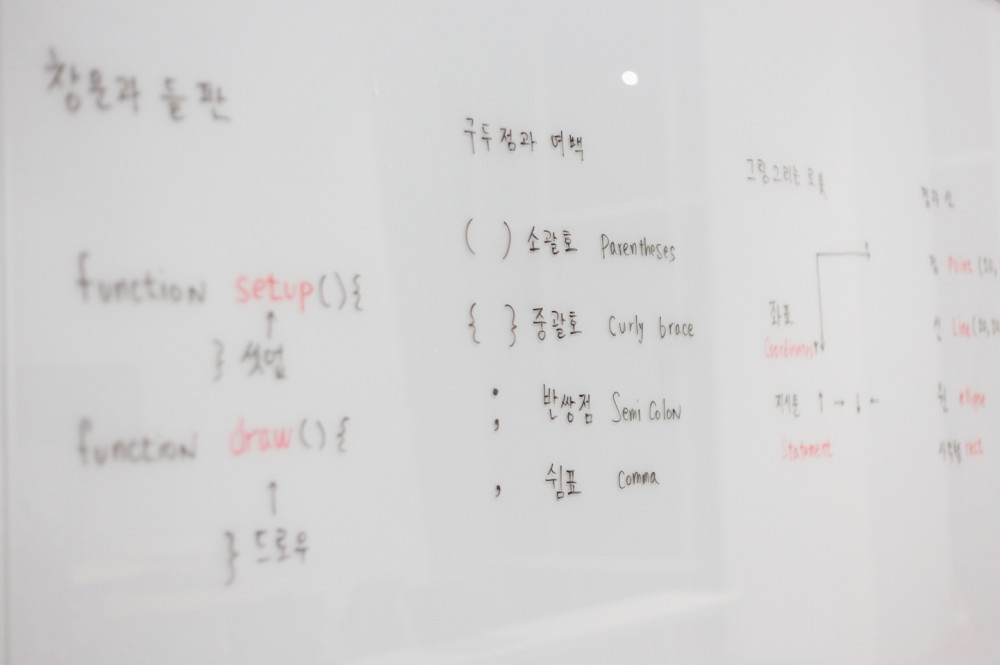 창문과 들판
function setup(){
↑
} 셋업
function draw(){
↑
} 드로우
구두점과 여백
( ) 소괄호 Parentheses
{ } 중괄호 Curly brace
; 반쌍점 Semi Colon
, 쉼표 Comma
그림그리는 로봇
좌표
Coordinates
지시문 ↑ → ↓ ←
Statement
점과 선
점 Point (20,
선 Line (20, 20
원 ellipse
사각형 rect